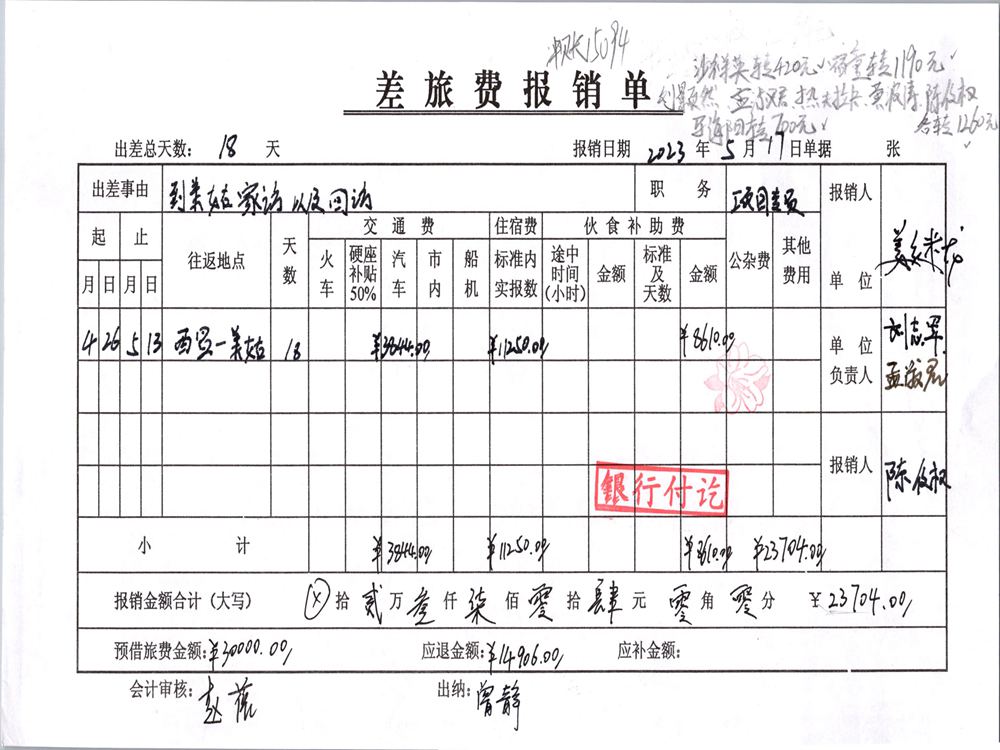 15094
转420元 转1190元
转700元 合转1260元
差旅费报销单
出差总天数: 18 天 报销日期 2023 年 5 月 17 日 单据 张
出差事由 到美姑家访以及回访 职务 项目专员 报销人
起 止 往返地点 天数 交通费 住宿费 伙食补助费 公杂费 其他费用 单位
月 日 月 日 火车 硬座补贴50% 汽车 市内 船机 标准内实报数 途中时间(小时) 金额 标准及天数 金额
4 26 5 13 西昌—美姑 18 ¥3844.00 ¥11250.00 ¥8610.00 单位负责人 刘志军
银行付讫
报销人 陈俊权
小计 ¥3844.00 ¥11250.00 ¥8610.00 ¥23704.00
报销金额合计(大写) ⊗ 拾 贰 万 叁 仟 柒 佰 零 拾 肆 元 零 角 零 分 ¥23704.00
预借旅费金额:¥30000.00 应退金额:¥14906.00 应补金额:
会计审核: 赵蓓 出纳: 曾静